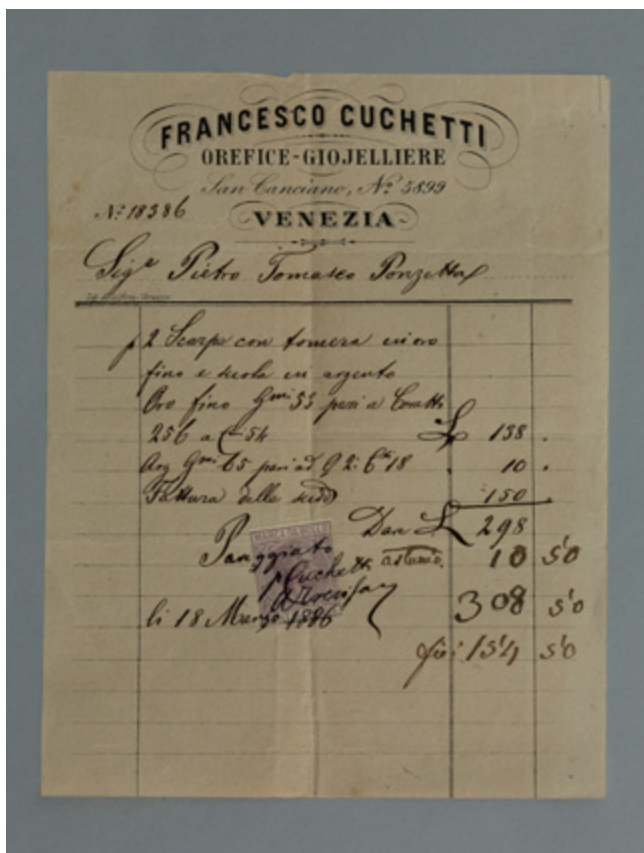 FRANCESCO CUCHETTI
OREFICE-GIOJELLIERE
San Canciano, Nº 5899
Nº 18386
VENEZIA
Sigr Pietro Tomaseo Ponzetta
2 Scarpe con tomera in oro
fino e suola in argento
Oro fino Gmi 53 pari a Caratti
256 a 54 £ 138 .
Arg Gmi 65 pari ad 18 . 10 .
Fattura delle sudd 150 .
Dan £ 298
MARCA DA BOLLO
Pareggiato astuccio 10 50
Cuchetti
308 50
li 18 Marzo 1886
154 50